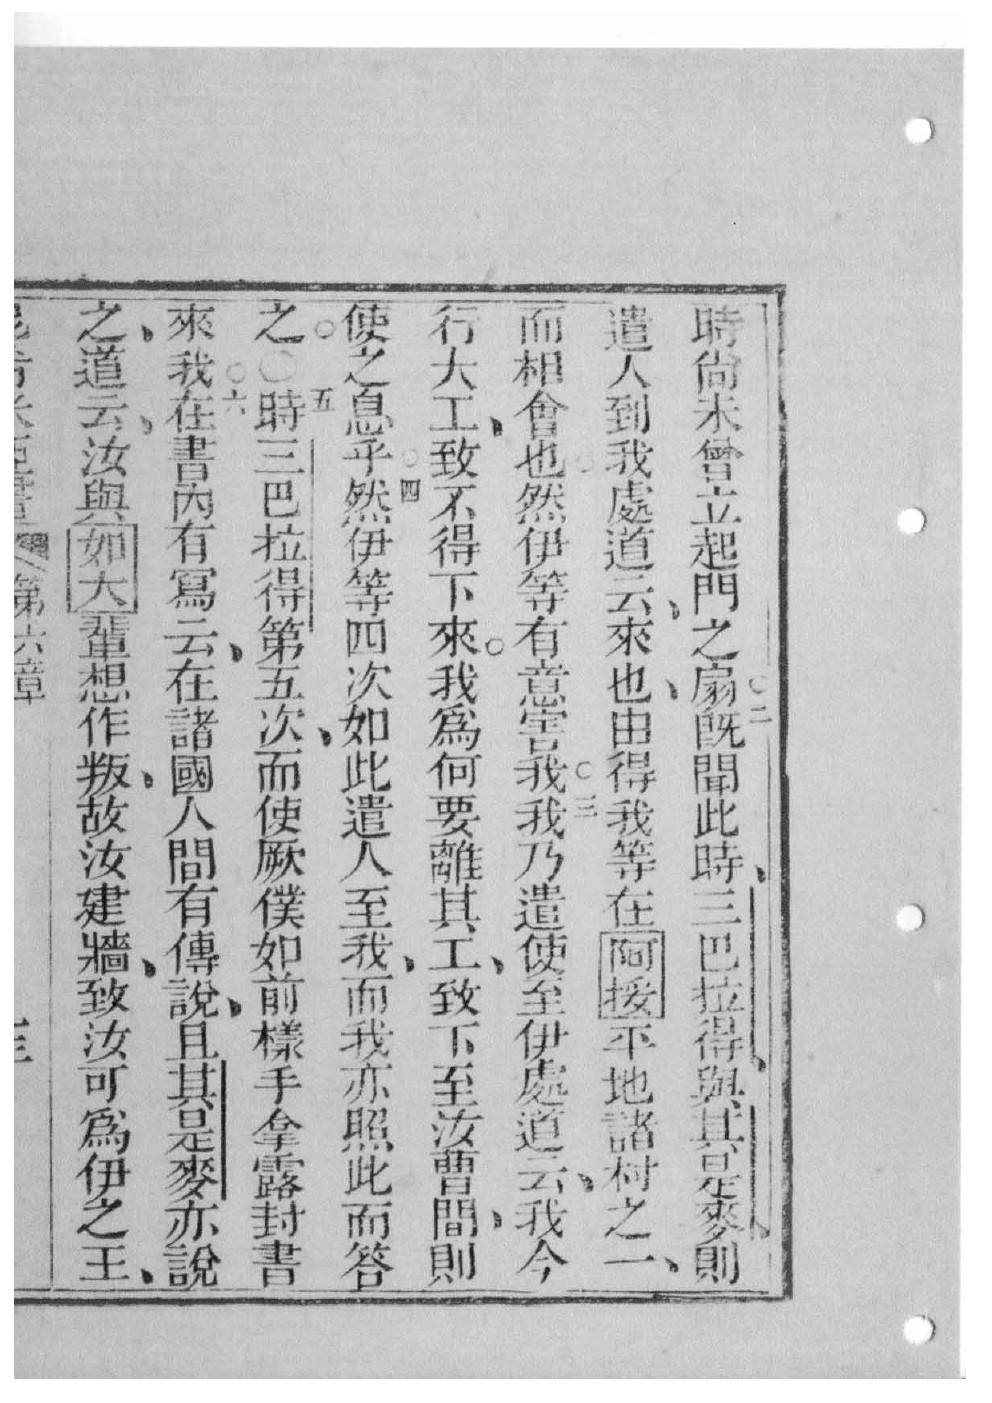 時尚未曾立起門之扇○二旣聞此時、三巴拉得、與其是麥、則
遣人到我處道云、來也、由得我等在阿挼平地諸村之一、
而相會也○然伊等有意害我○三我乃遣使至伊處道云、我今
行大工、致不得下來○我爲何要離其工、致下至汝曹間、則
使之息乎○四然伊等四次如此遣人至我、而我亦照此而答
之○○五時三巴拉得第五次、而使厥僕如前樣手拿露封書
來○六我在書內有寫云、在諸國人間有傳說、且其是麥亦說
之、道云、汝與如大輩想作叛、故汝建牆、致汝可爲伊之王、
第六章